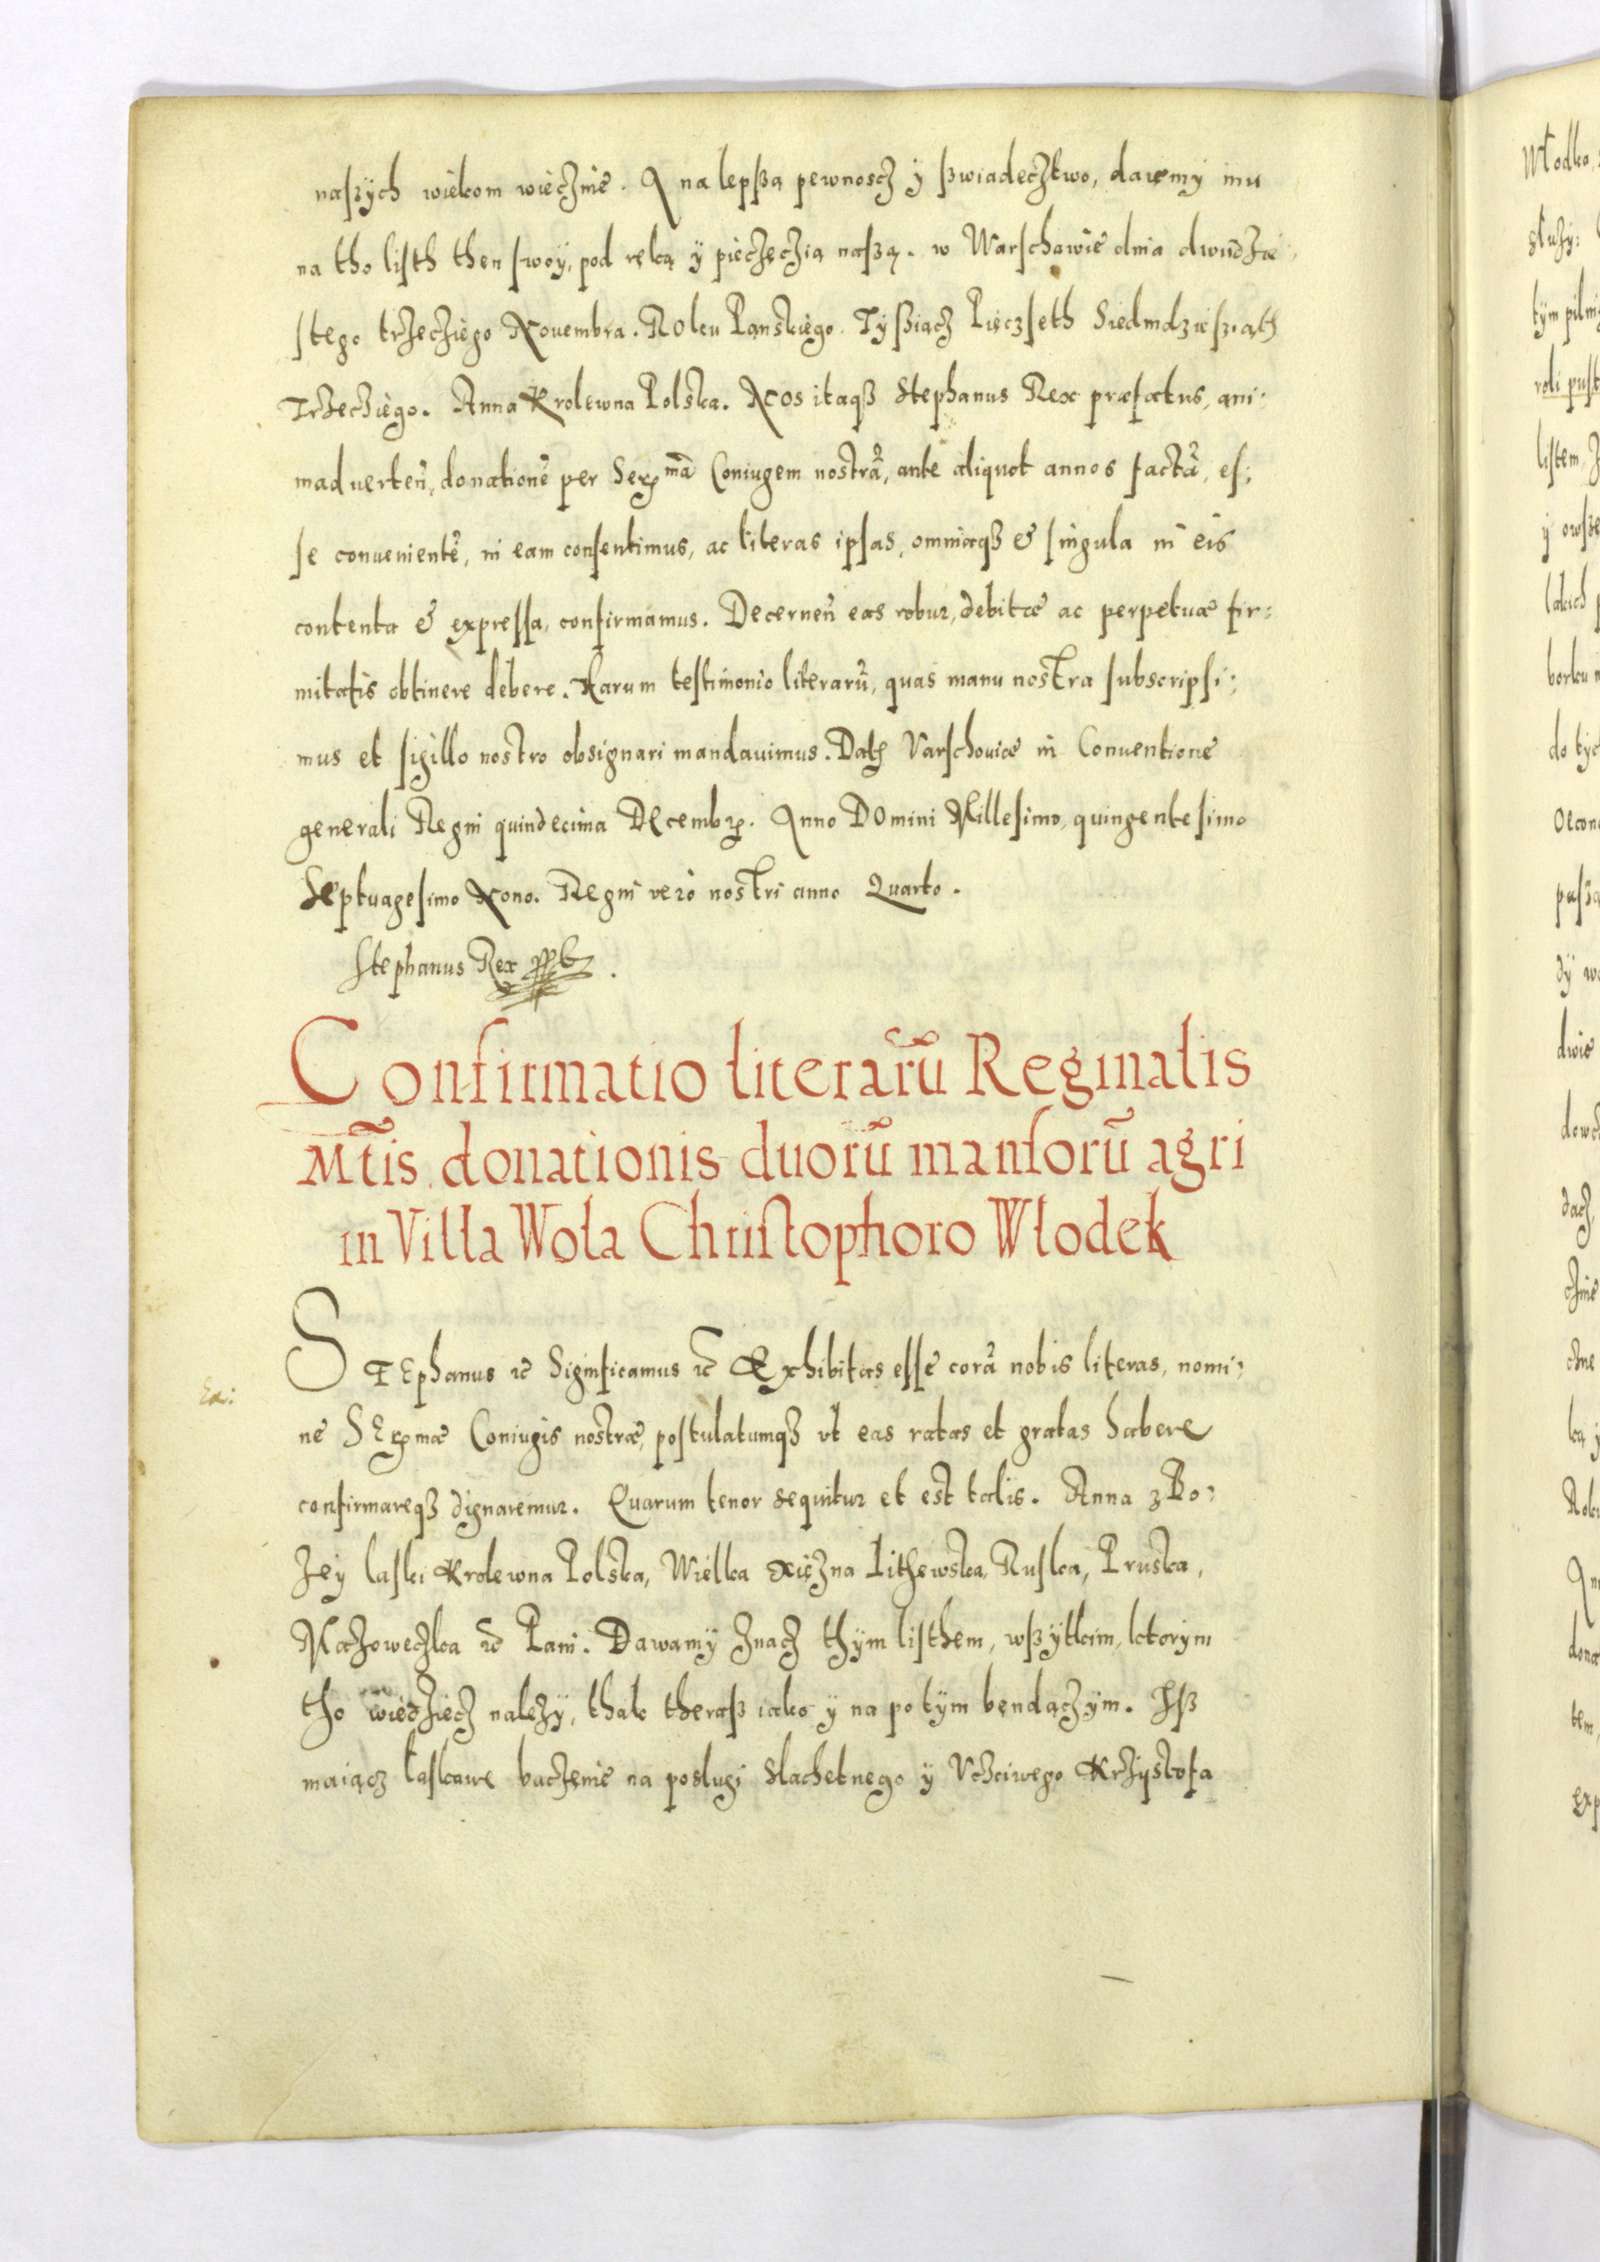 naszych wiekom wiecznie. A na lepszą pewnoscz y szwiadecztwo, dawamy mu
na tho listh then swoy, pod ręką y pieczęczią naszą. w Warschawie dnia dwudzie:
stego trzecziego Novembra. Roku Panskiego. Tysziącz Pięczseth Siedmdziesziąth
Trzecziego. Anna Krolewna Polska. Nos itaqȝ Stephanus Rex præfatus, ani:
maduerteñ, donationē per Serᵐᵃ̄ Coniugem nostrā, ante aliquot annos factā, es:
se conuenientē, in eam consentimus, ac literas ipsas, omniaqȝ & singula in eis
contenta & expressa, confirmamus. Decerneñ eas robur, debitæ ac perpetuæ fir:
mitatis obtinere debere. Harum testimonio literarū, quas manu nostra subscripsi:
mus et sigillo nostro obsignari mandauimus. Datū Varschouiæ in Conuentione
generali Regni quindecima Decembꝝ. Anno Domini Millesimo, quingentesimo
Septuagesimo Nono. Regni vero nostri anno Quarto.
Stephanus Rex
Confirmatio literarū Reginalis
Mt̄is donationis duorū mansorū agri
in Villa Wola Christophoro Włodek
Stephanus ec̄ Significamus ec̄ Exhibitas esse corā nobis literas, nomi:
Ex:
ne Serm̄æ Coniugis nostræ, postulatumqȝ vt eas ratas et gratas habere
confirmareqȝ dignaremur. Quarum tenor sequitur et est talis. Anna z Bo:
zey laski Krolewna Polska, Wielka Xiezna Lithewska, Ruska, Pruska,
Mazoweczka ec̄ Pani. Dawamy znacz thym listhem, wszytkim, ktorym
tho wiedziecz nalezy, thak theraz iako y na potym bendączym. Isz
maiącz laskawe baczenie na poslugi slachetnego y Vczciwego Krzystofa